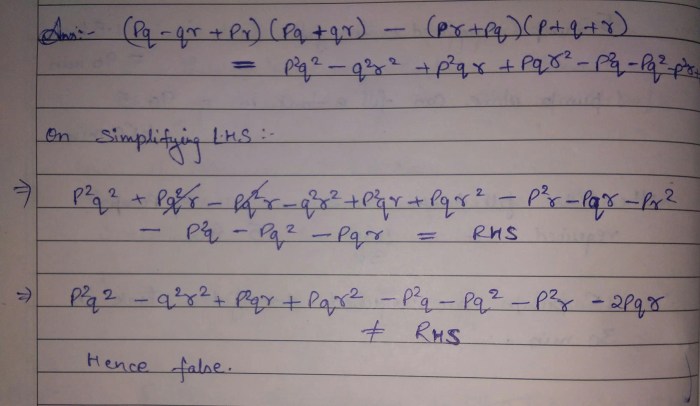 Ans:- (Pq - qr + Pr) (Pq + qr) - (pr + Pq) (P + q + r)
= P²q² - q²r² + P²qr + Pqr² - P²q - Pq² - P²r +
On Simplifying LHS :-
⇒ P²q² + Pq²r - Pq²r - q²r² + P²qr + Pqr² - P²r - Pqr - Pr²
- P²q - Pq² - Pqr = RHS
⇒ P²q² - q²r² + P²qr + Pqr² - P²q - Pq² - P²r - 2Pqr
≠ RHS
Hence false.